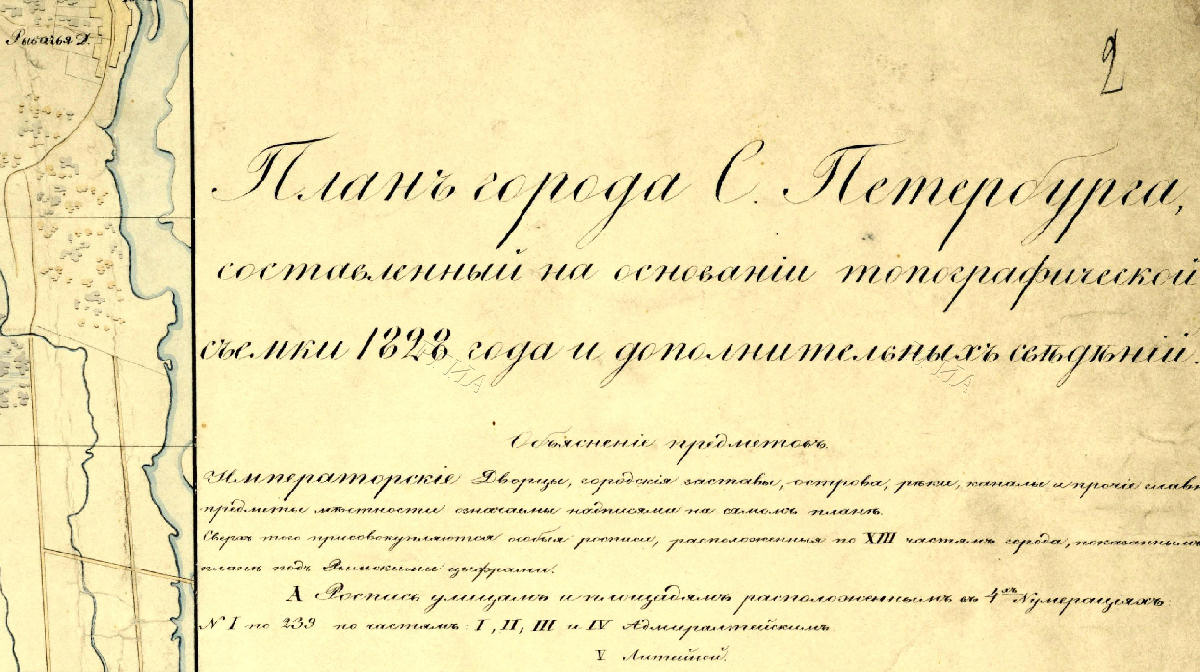 Рыбачья Д.
2
Планъ города С. Петербурга,
составленный на основаніи топографической
съемки 1828 года и дополнительныхъ свѣдѣній.
Объясненіе предметовъ.
Императорскіе Дворцы, городскія заставы, острова, рѣки, каналы и прочіе главн
предметы мѣстности означены надписями на самомъ планѣ.
Сверхъ того присовокупляются особыя росписи, расположенныя по XIII частямъ города, показаннымъ
планѣ подъ Римскими цыфрами.
А Роспись улицамъ и площадямъ расположеннымъ въ 4хъ Нумераціяхъ
№ 1 по 239 по частямъ: I, II, III и IV Адмиралтейскимъ
V Литейной.